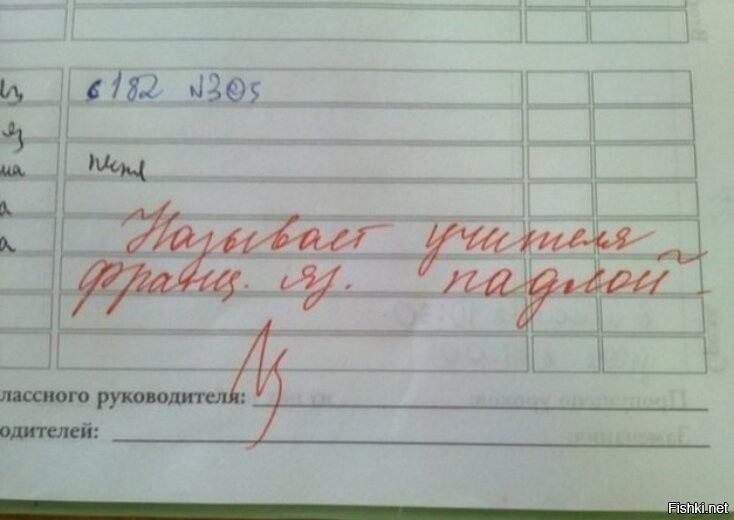 с 182 N305
яз
песня
Называет учителя
франц. яз. падлой
лассного руководителя:
одителей:
Fishki.net